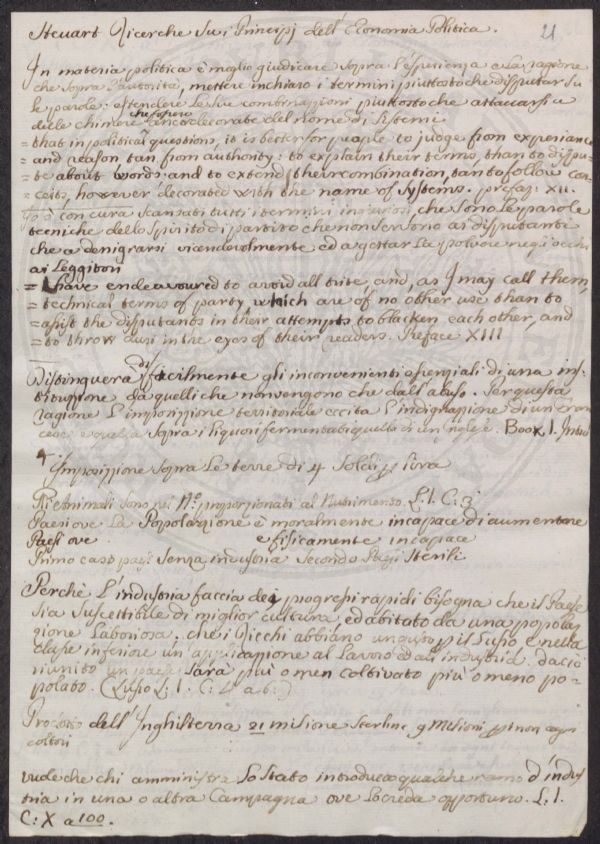 Steuart Ricerche Su i Principj dell'Economia Politica. 21
In materia politica è meglio giudicare sopra l'esperienza e la ragione
che sopra l'autorità, mettere in chiaro i termini piuttosto che disputar su
le parole: estendere le sue combinazioni piuttosto che attaccarsi a
delle chimere che fossero ancor decorate del nome di Sistemi
= that in political questions, it is better for people to judge from experiance
= and reason, tan from authority: to explain their terms, than to dispu-
= te about words: and to extend their combination, tan to follow con-
= ceits, however decorated with the name of Systems. prefaz: XII.
Io ò con cura scansati tutti i termini ingiuriosi, che sono le parole
tecniche dello Spirito di partito che non servono ai disputanti
che a denigrarsi vicendevolmente ed a gettar la polvere negli occhi
ai Leggitori
= I have endeavoured to avoid all trite, and, as I may call them,
= technical terms of party which are of no other use than to
= assist the disputants in their attempts to blacken each other, and
= to throw dust in the eyes of their readers. Preface XIII
Distinguerà difficilmente gli inconvenienti essenziali di una ins-
tituzione da quelli che non vengono che dall'abuso. Per questa
ragione l'imposizione territoriale eccita l'indignazione di un Fran
cese e questa sopra i liquori fermentati quella di un Inglese. Book I. Introd
Imposizzione sopra le terre di 4 Soldi p lira
Gli Animali sono nel N.º proporzionati al Nutrimento. L. I. C: 3
Paesi ove la Popolazione è moralmente incapace di aumentare
Paesi ove e fisicamente incapace
Primo caso paesi senza industria Secondo Paesi Sterili
Perchè l'industria faccia dei progressi rapidi bisogna che il Paese
sia suscettibile di miglior cultura, ed abitato da una popola-
zione Laboriosa. che i Ricchi abbiano un gusto p il Lusso e nella
classe inferiore un'applicazione al Lavoro ed all'industria. Da ciò
riunito un paese sarà più o men coltivato più o meno po-
polato. (Lusso L. I. C:
Prodotto dell'Inghilterra 21 milione Sterline 9 Milioni p i non agri
coltori
vuole che chi amministra lo Stato introduca qualche ramo d'indus
tria in una o altra Campagna ove lo creda opportuno. L. I.
C: X a 100.